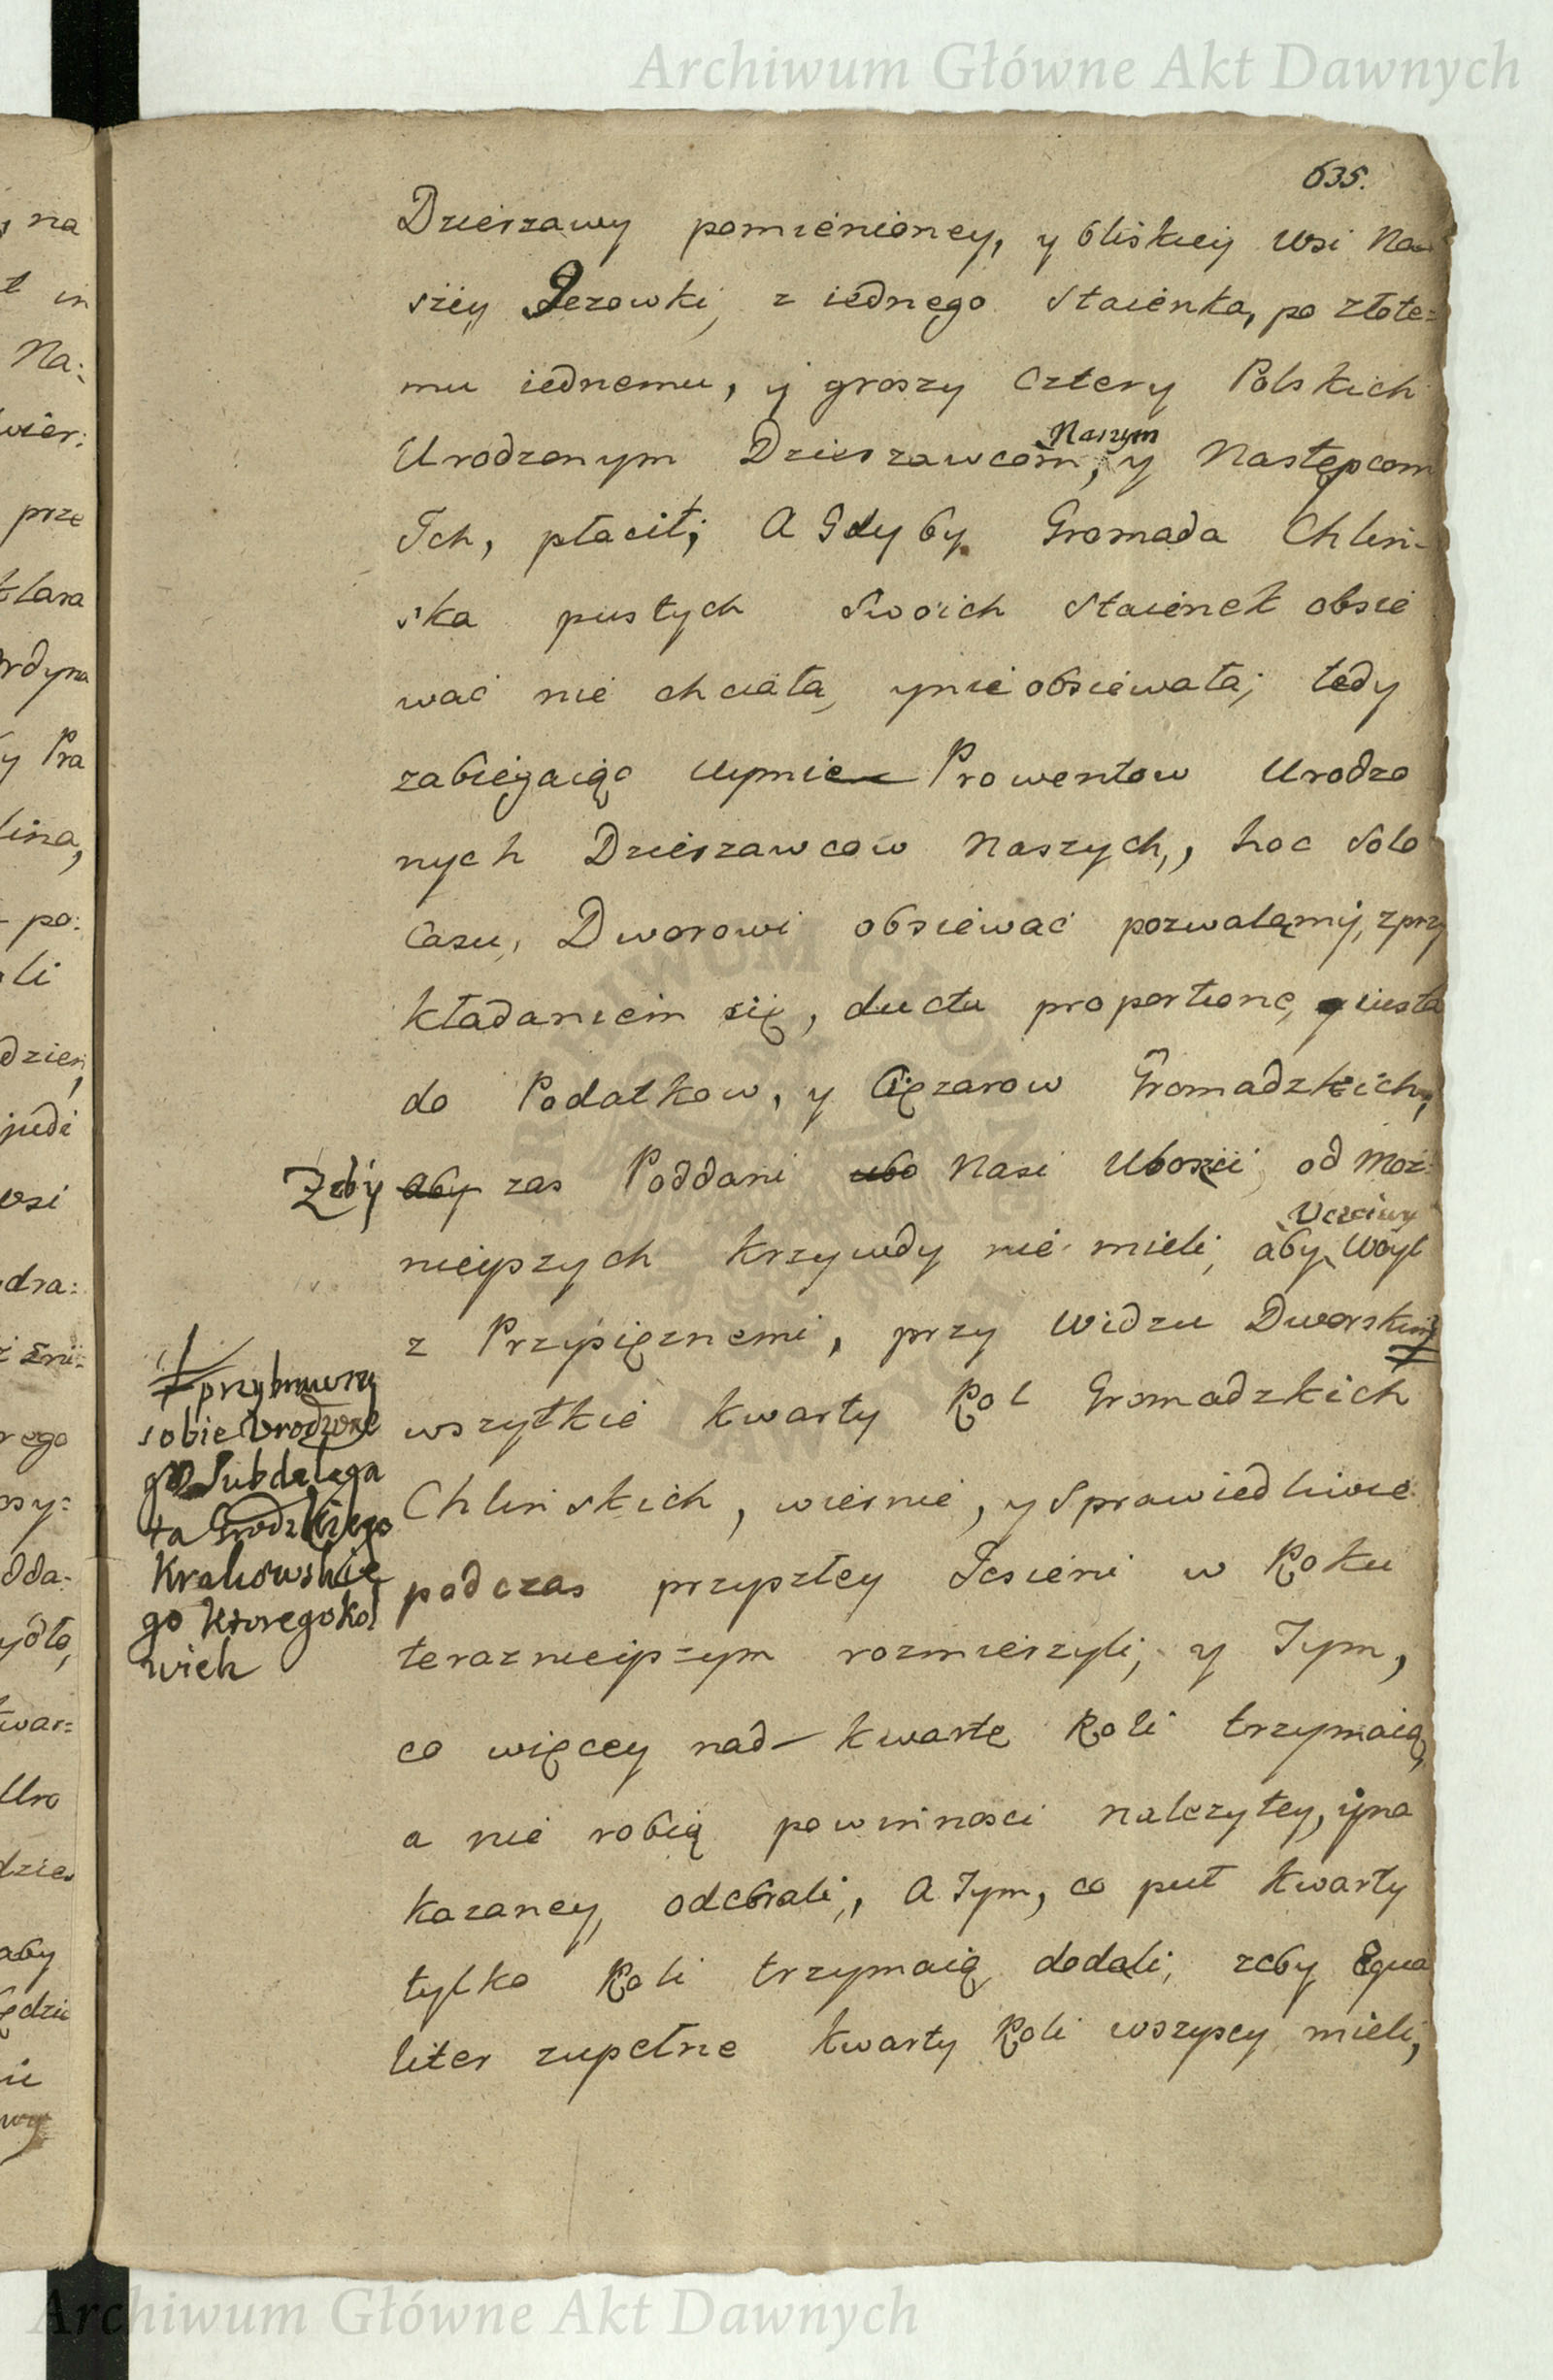 Archiwum Główne Akt Dawnych
635.
Dzierzawy pomienioney, y bliskiey wsi Na=
szey Jezowki, z iednego Staienka, po złote=
mu iednemu, y groszy cztery Polskich
Urodzonym Dzierzawcom, Naszym y Następcom
Ich, płacił; A Gdyby Gromada Chlin=
ska pustych Swoich Staienek obsie
wać nie chciała, ynie obsiewała; tedy
zabiegaiąc Uymie Prowentow Urodzo
nych Dzierzawcow Naszych, hoc Solo
Casu, Dworowi obsiewać pozwalamy, zprzy
kładaniem się, ductu proportione, y iusta
do Podatkow, y Ciężarow Gromadzkich,
Zeby aby zas Poddani ubo Nasi Ubozsi, od Moz=
nieyszych krzywdy nie mieli, aby Uczciwy Woyt
z Przysięznemi, przy Widzu Dworskim
wszytkie kwarty Rol Gromadzkich
Chlinskich, wiernie, y Sprawiedliwie
podczas przyszłey Iesieni w Roku
teraznieyszym rozmierzyli, y Tym,
co więcey nad kwartę Roli trzymaią,
a nie robią powinnosci nalezytey, yna
kazaney, odebrali, A Tym, co puł kwarty
tylko Roli trzymaią, dodali, zeby Equa
liter zupełne kwarty Roli wszyscy mieli,
przybrawszy
sobie Urodzone
go Subdelega
ta Grodzkiego
Krakowskie
go ktoregokol
wiek
na
in
Na:
wier:
prze
klara
rdyna
y Pra
lina,
po:
li
dzień,
judi
wsi
dra:
rego
osy=
dda=
war=
Uro
dzie
aby
ędzie
Archiwum Główne Akt Dawnych